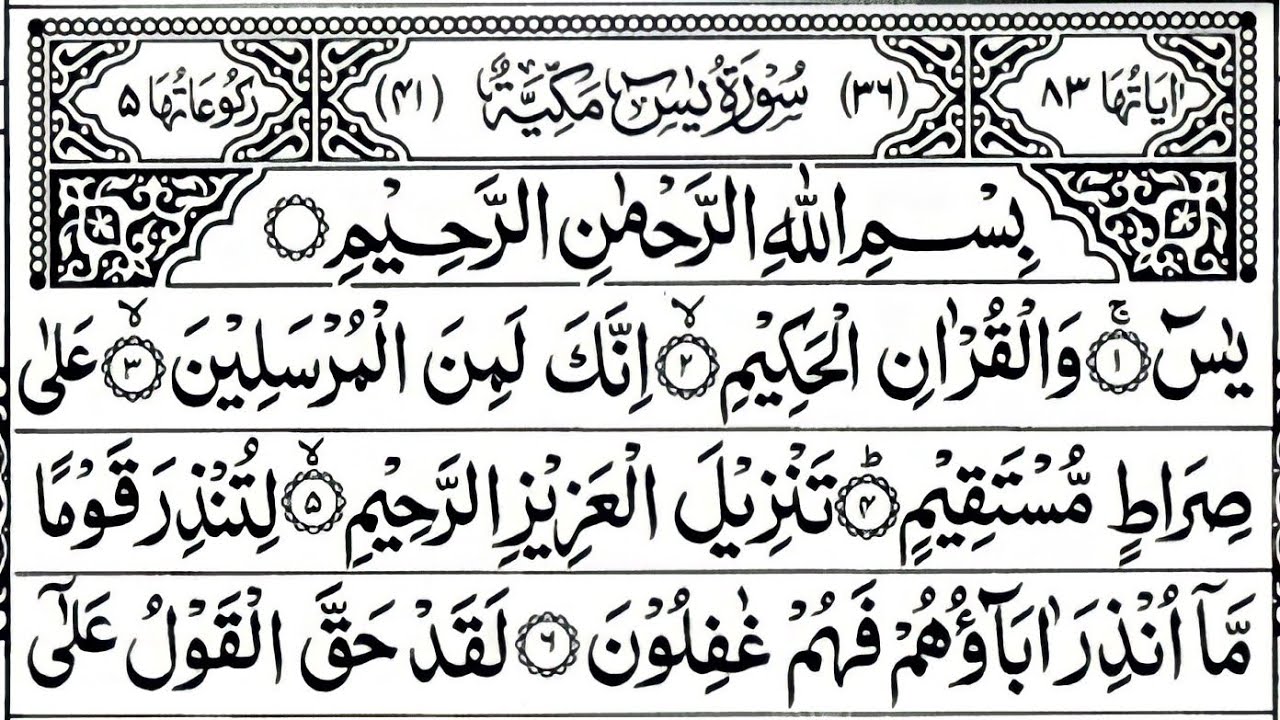 اٰیَاتُهَا ۸۳ (۳۶) سُوْرَةُ یٰسٓ مَكِّیَّةٌ (۴۱) رُكُوْعَاتُهَا ۵
بِسْمِ اللّٰهِ الرَّحْمٰنِ الرَّحِیْمِ
یٰسٓ ۚ‏﴿۱﴾ وَالْقُرْاٰنِ الْحَكِیْمِ ۙ‏﴿۲﴾ اِنَّكَ لَمِنَ الْمُرْسَلِیْنَ ۙ‏﴿۳﴾ عَلٰی
صِرَاطٍ مُّسْتَقِیْمٍ ؕ‏﴿۴﴾ تَنْزِیْلَ الْعَزِیْزِ الرَّحِیْمِ ۙ‏﴿۵﴾ لِتُنْذِرَ قَوْمًا
مَّاۤ اُنْذِرَ اٰبَآؤُهُمْ فَهُمْ غٰفِلُوْنَ ﴿۶﴾ لَقَدْ حَقَّ الْقَوْلُ عَلٰۤی